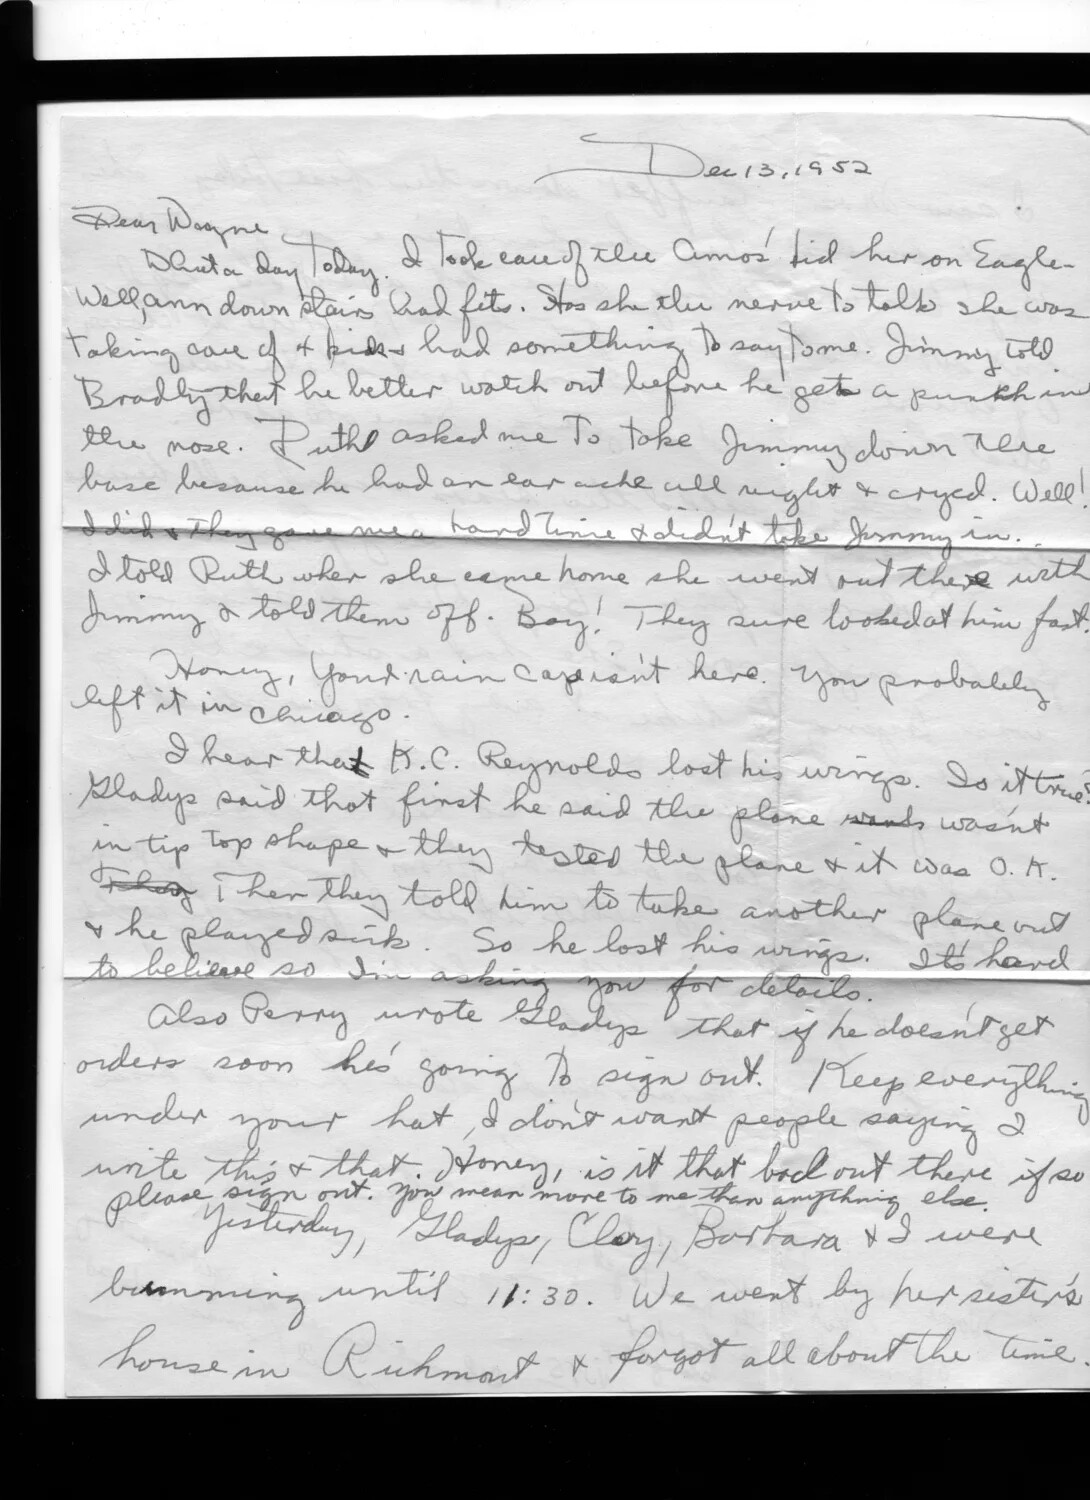 Dec 13, 1952
Dear Wayne
What a day Today. I took care of the Amos' kid her on Eagle-
Well, ann down stairs had fits. Has she the nerve to talk she was
taking care of 4 kids & had something to say to me. Jimmy told
Bradly that he better watch out before he gets a punch in
the nose. Ruth asked me to take Jimmy down the
base because he had an ear ache all night & cryed. Well!
I did & they gave me a hard time & didn't take Jimmy in..
I told Ruth when she came home she went out there with
Jimmy & told them off. Boy! They sure looked at him fast.
Honey, Your rain cape isn't here. You probably
left it in Chicago.
I hear that K.C. Reynolds lost his wings. Is it true?
Gladys said that first he said the plane wasn't
in tip top shape & they tested the plane & it was O.K.
They Then they told him to take another plane out
& he played sick. So he lost his wings. It's hard
to believe so I'm asking you for details.
Also Perry wrote Gladys that if he doesn't get
orders soon he's going to sign out. Keep everything
under your hat, I don't want people saying I
write this & that. Honey, is it that bad out there if so
please sign out. You mean more to me than anything else.
Yesterday, Gladys, Cloy, Barbara & I were
bumming until 11:30. We went by her sister's
house in Richmont & forgot all about the time.